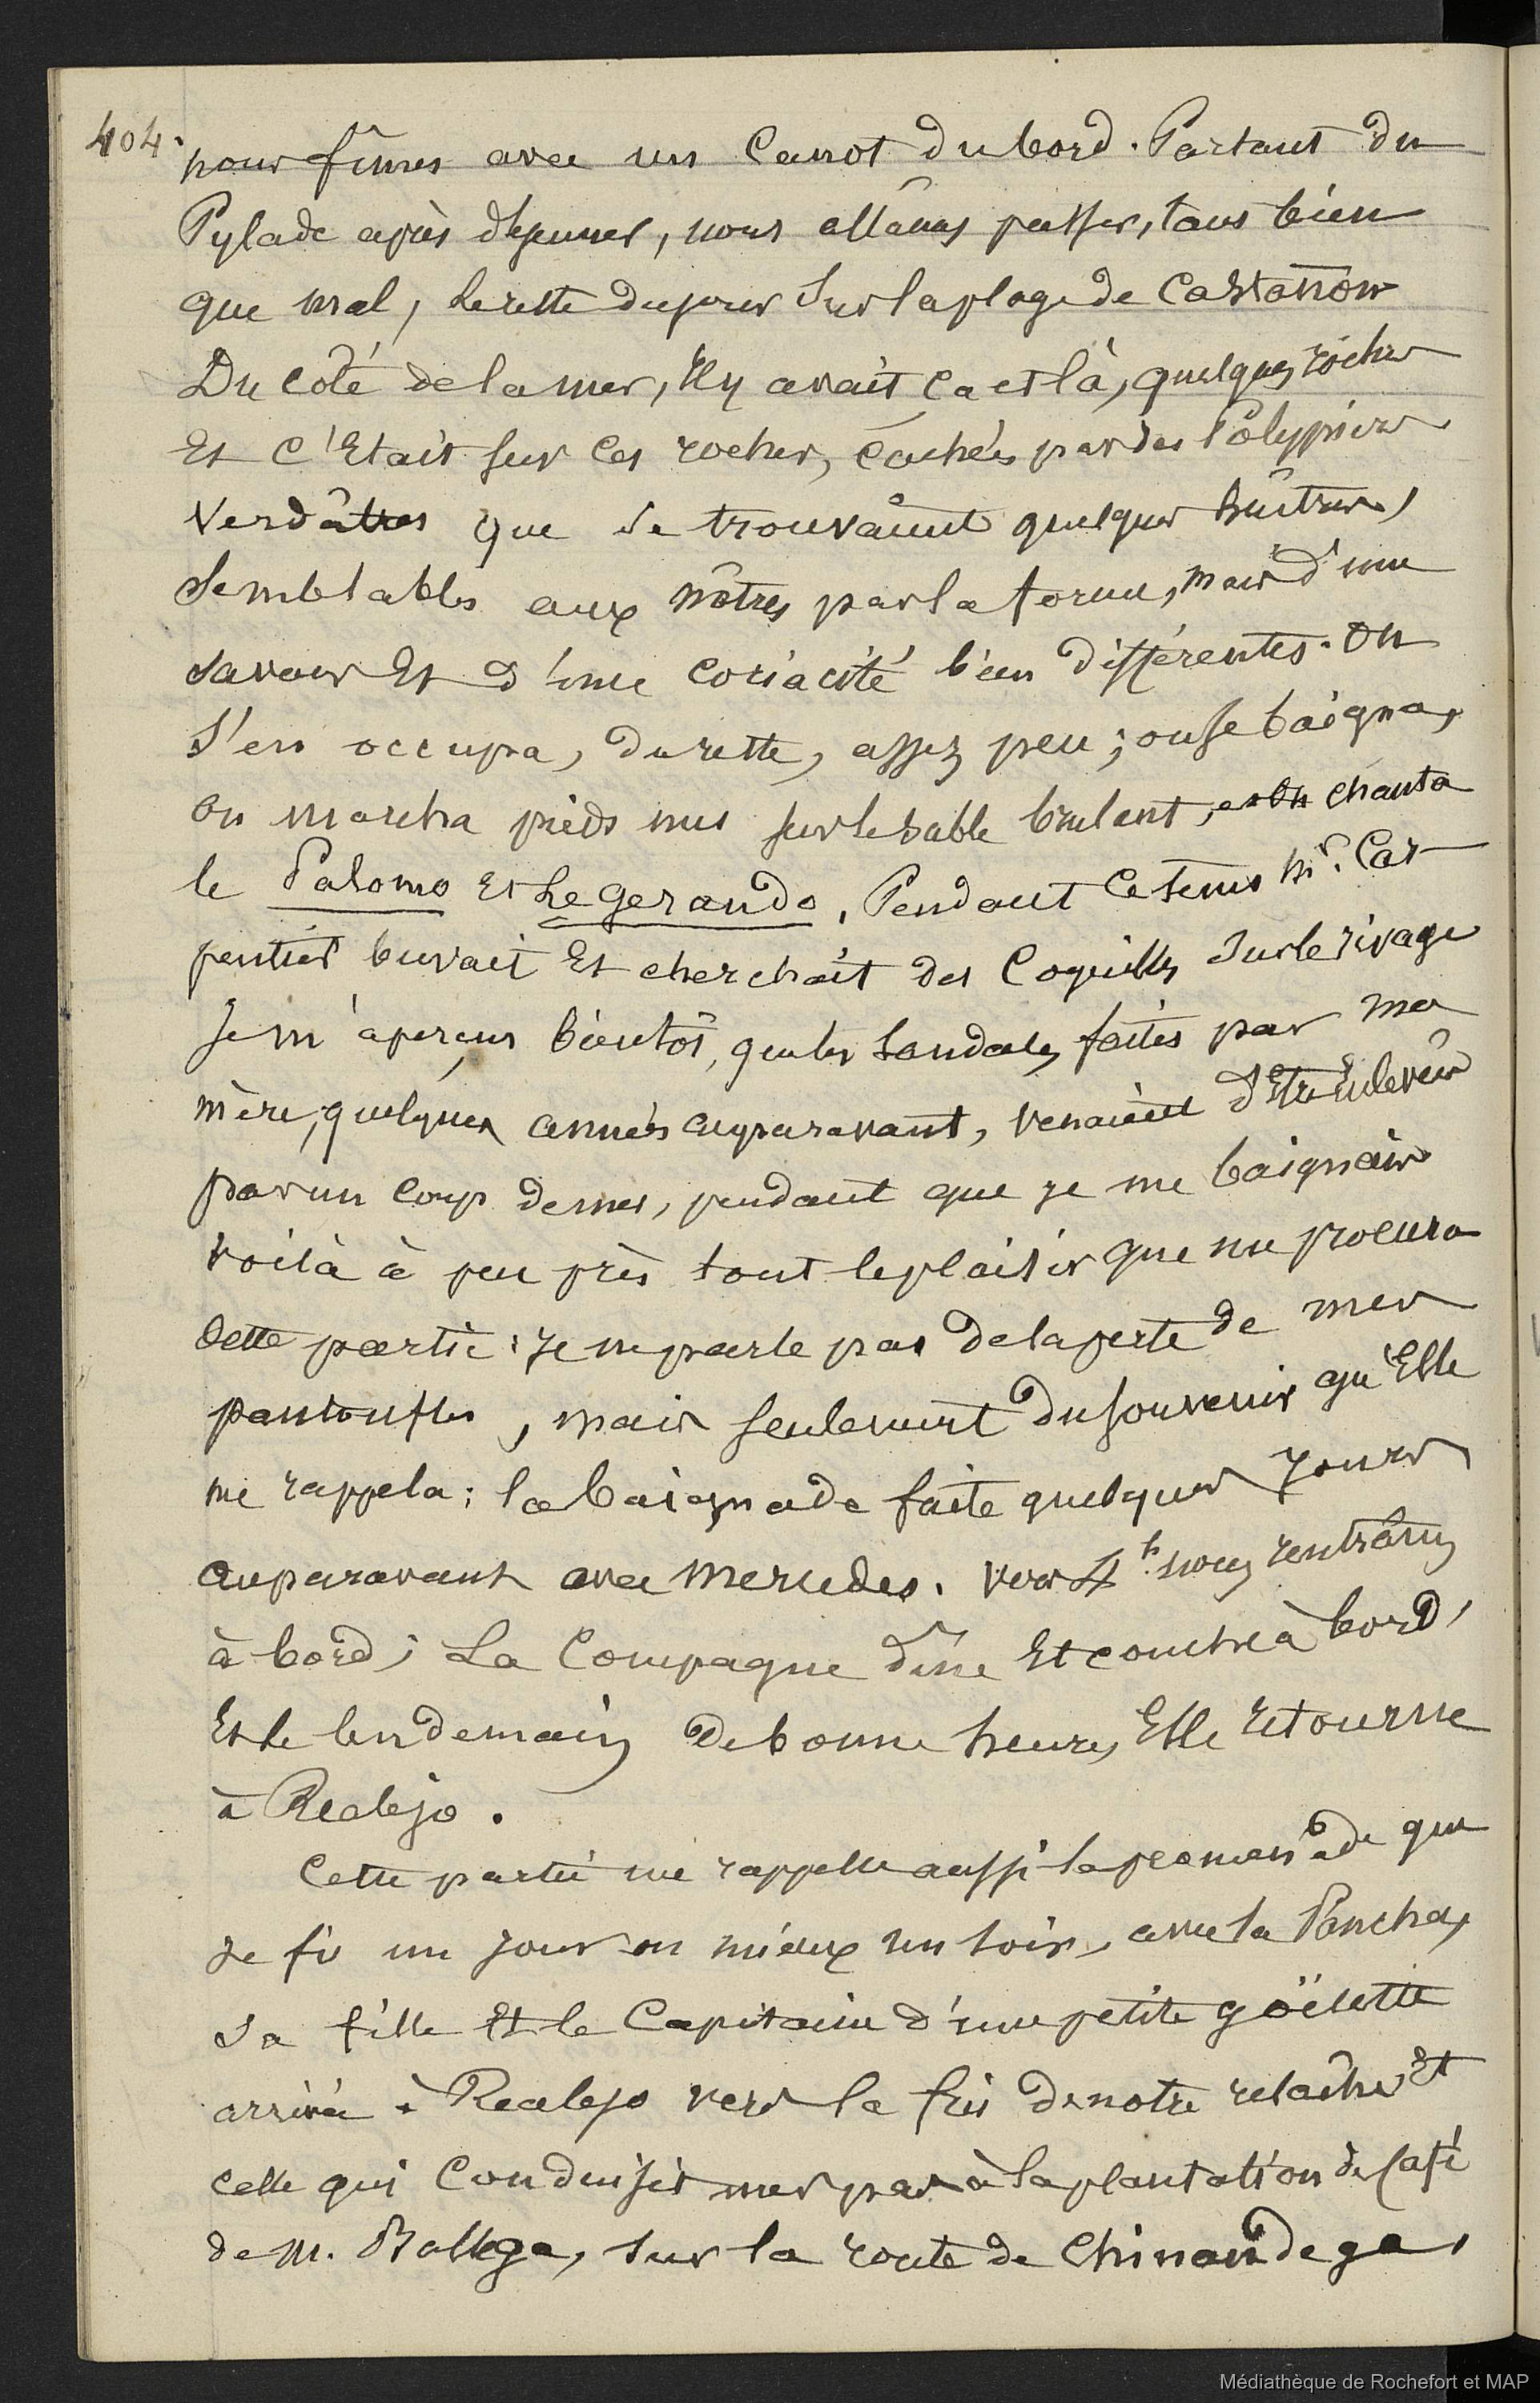 404.
nous fîmes avec un Canot du bord. Partant du
Pylade après déjeuner, nous allâmes passer, tans bien
que mal, le reste du jour sur la plage de Castonon
Du coté de la mer, Il y avait ca et là, quelques rocher
Et C'Etait sur ces rocher, cachés par des Polypiers
Verdâtres que se trouvaient quelques huîtres,
Semblables aux nôtres par la forme, mais d'une
saveur Et d'une coriacité bien différentes. On
s'en occupa, du reste, assez peu; on se baigna,
On marcha pieds nus sur le sable brulant, on chanta
le Palomo Et Le gerando. Pendant Ce tems Mr. Car-
pentier buvait Et cherchait des Coquilles sur le rivage
Je m'aperçus bientôt, que les Sandales faites par ma
mère, quelques années auparavant, venaient d'Etre Enlevées
par un coup de mer, pendant que je me baignais
Voilà à peu près tout le plaisir que me procura
Cette partie: Je ne parle pas de la perte de mes
pantoufles, mais seulement du souvenir qu'Elle
me rappela; la baignade faite quelques Jours
auparavant avec Mercedes. Vers 4h. nous rentrâmes
à bord; La Compagnie dîne Et couche à bord,
Et le lendemain de bonne heure, Elle retourne
à Realejo.
Cette partie me rappelle aussi la promenade que
Je fis un Jour ou mieux un soir, avec la Pancha,
sa fille Et le Capitaine d'une petite goëlette
arrivée à Realejo vers la fin de notre relâche Et
celle qui Conduisit mes pas à la plantation de Café
de M. Ballega, sur la route de Chinandega,
Médiathèque de Rochefort et MAP